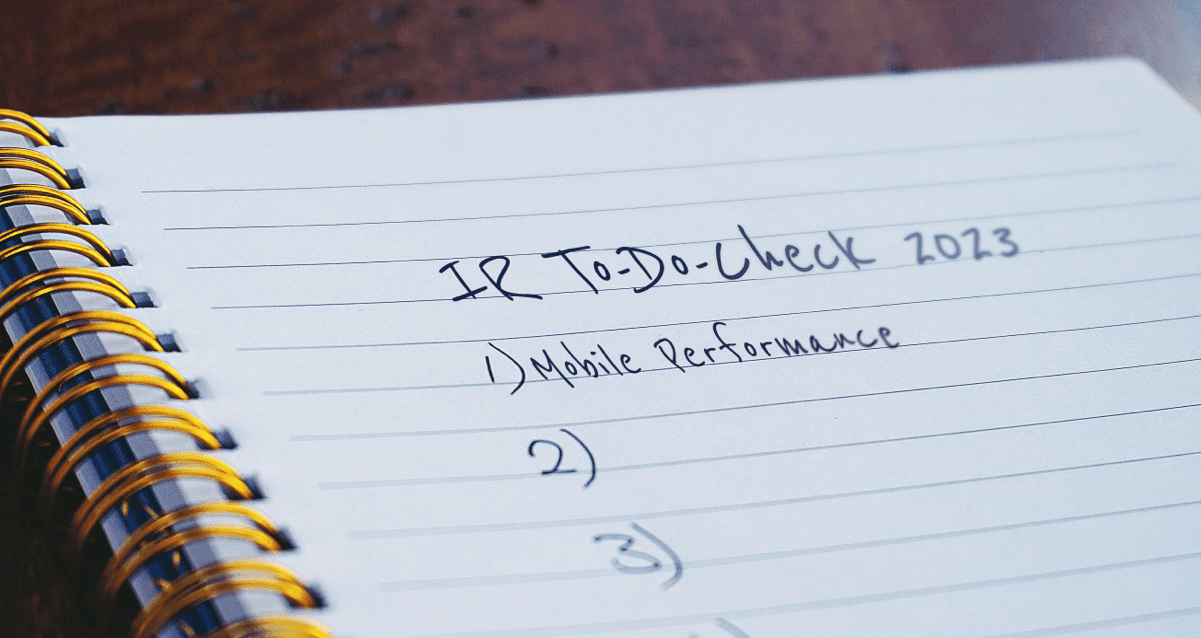 IR To-Do-Check 2023
1) Mobile Performance
2)
3)